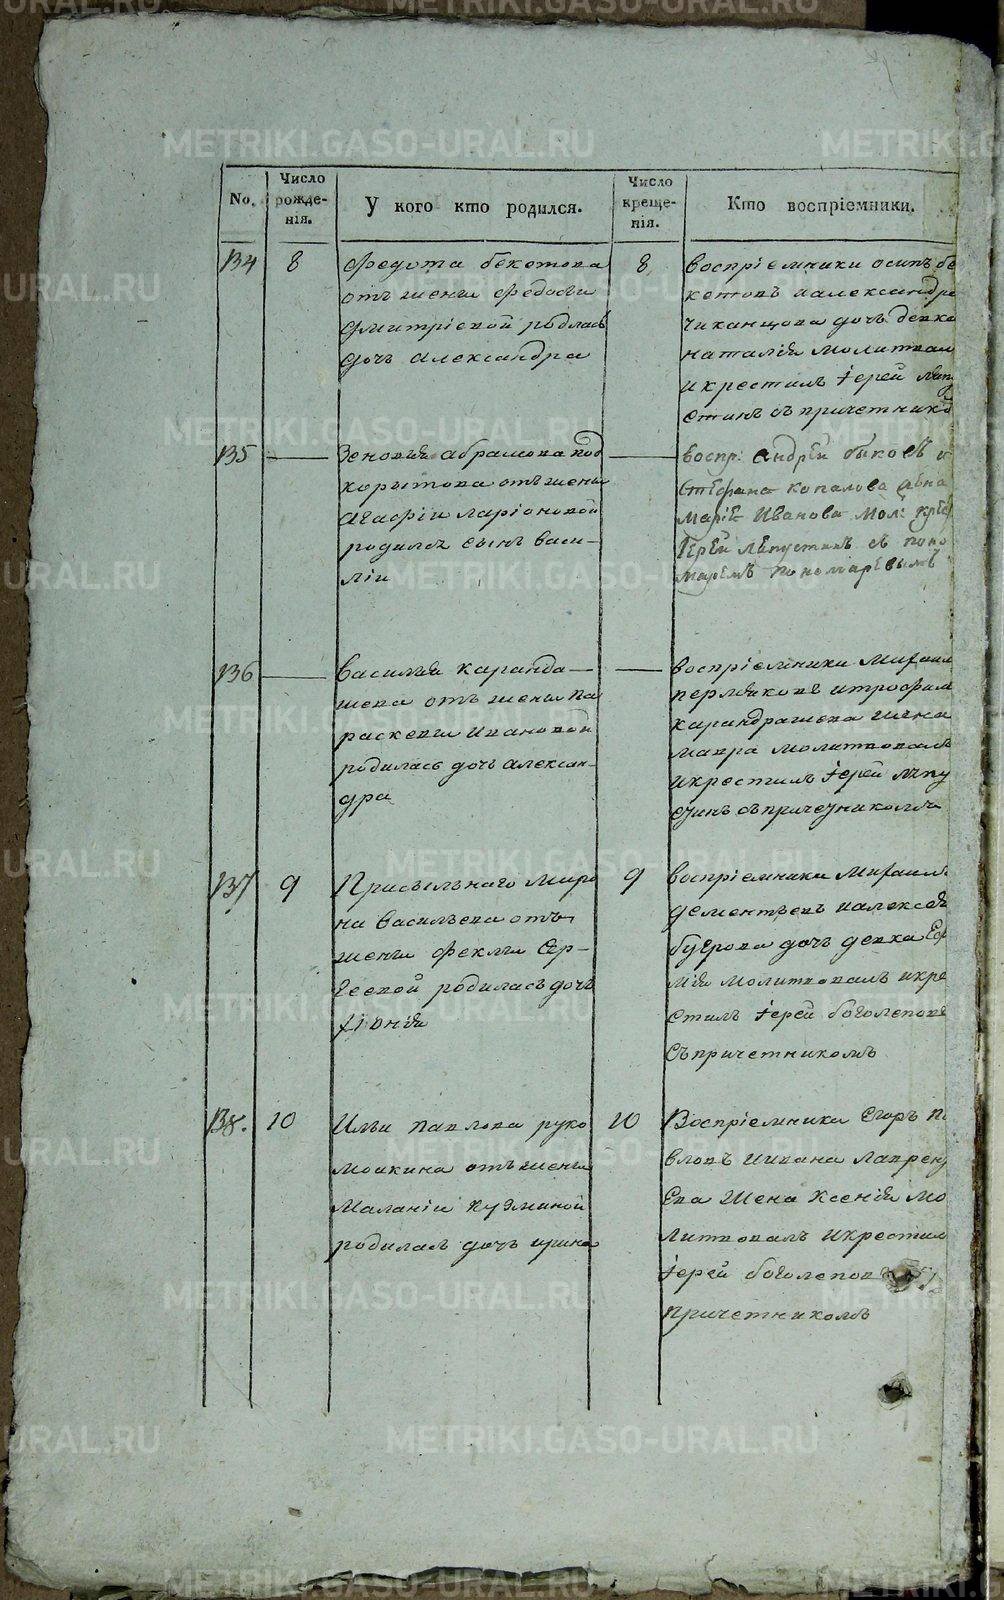 No.
Число рожде- нія.
У кого кто родился.
Число креще- нія.
Кто воспріемники.
134 8
Федота бекетова
отъ жены Федосьи
Дмитріевой родлась
дочь Александра
8
воспріемники осипъ бе
кетовъ иалександра
чиканцова дочь девка
наталія молитвал
икрестилъ Іерей лапу
стинъ съ причетнико
135
Зеновия абрамова под
корытова отъ жены
Агафіи ларіоновой
родился сынъ васи-
лій
воспр: Андрей быковъ и
Стефана копалова жена
Маріе Иванова Мол: кре
Іерей лапустинъ съ поно
маремъ пономаревымъ
136
Василия каранда
шева отъ жены па
раскевы ивановой
родилась дочь алексан-
дра
воспріемники михаил
перляковъ итрофим
карандашева жена
мавра молитвовалъ
икрестилъ Іерей лапу
стинъ съпричетникомъ
137 9
Присыльнаго миро
на васильева отъ
жены феклы Сер-
геевой родилась дочь
9
воспріемники михаилъ
дементьевъ иалексея
бугрова дочь девка
мія молитвовалъ икре
стилъ Іерей боголеповъ
съпричетникомъ
138. 10
Ильи павлова руко
мойкина отъ жены
Маланіи кузминой
родилась дочь ирина
10
Воспріемники Егоръ па
вловъ ивана лаврент
ева жена ксенія мо
литвовалъ икрестил
Іерей боголеповъ
причетникомъ
METRIKI.GASO-URAL.RU